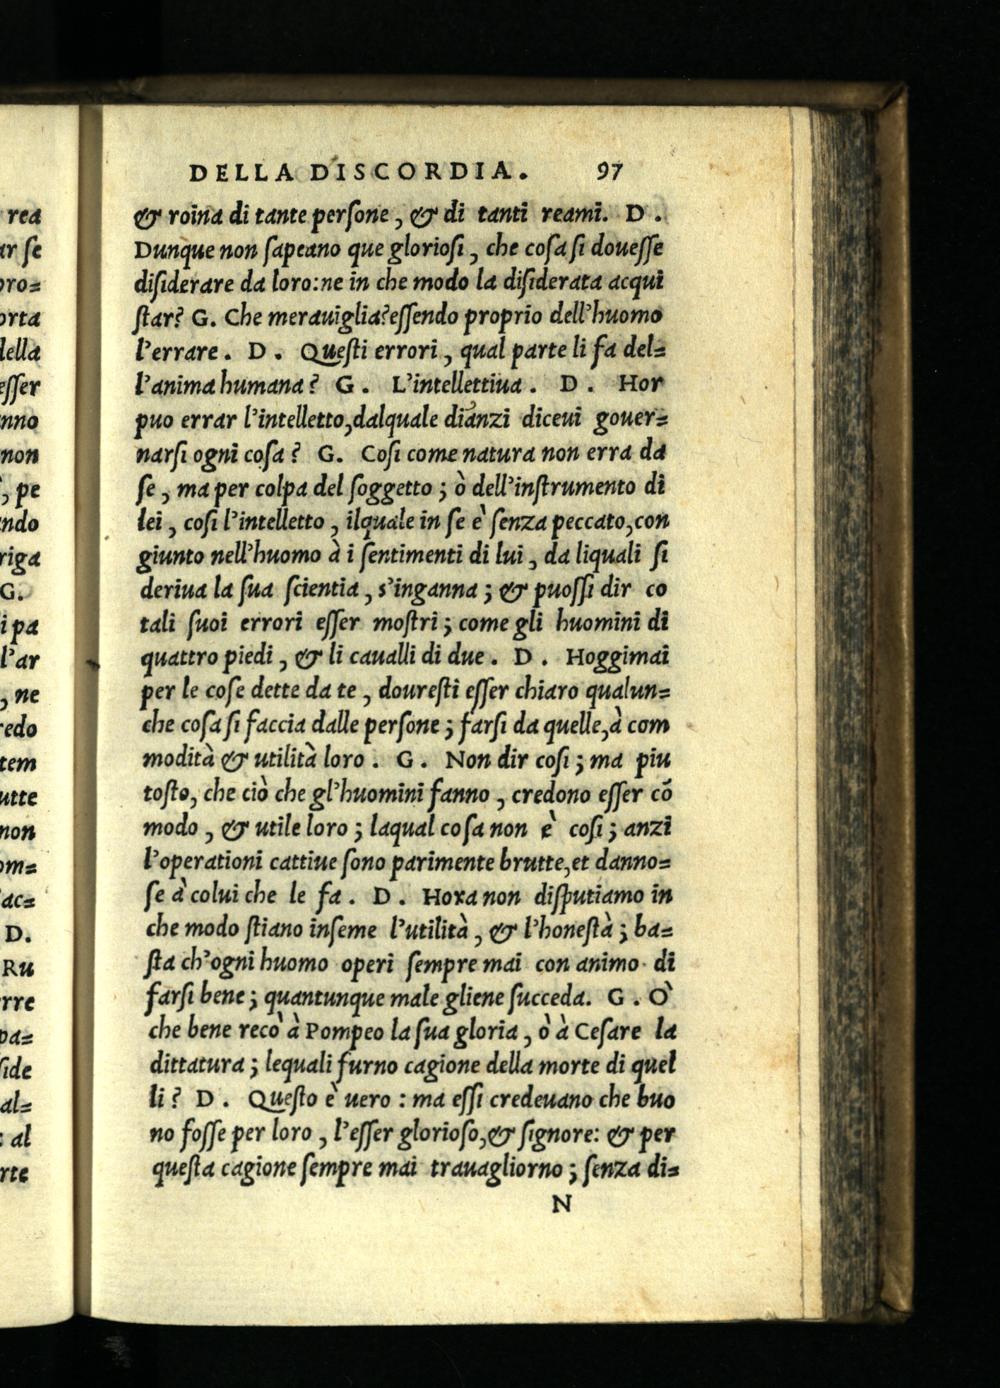 DELLA DISCORDIA. 97
& roina di tante perſone, & di tanti reami. D.
Dunque non ſapeano que glorioſi, che coſa ſi doueſſe
diſiderare da loro: ne in che modo la diſiderata acqui
ſtar? G. Che merauiglia? eſſendo proprio dell'huomo
l'errare. D. Queſti errori, qual parte li fa del=
l'anima humana? G. L'intellettiua. D. Hor
puo errar l'intelletto, dalquale diãnzi diceui gouer=
narſi ogni coſa? G. Coſi come natura non erra da
ſe, ma per colpa del ſoggetto; ò dell'inſtrumento di
lei, coſi l'intelletto, ilquale in ſe è ſenza peccato, con
giunto nell'huomo à i ſentimenti di lui, da liquali ſi
deriua la ſua ſcientia, s'inganna; & puoſſi dir co
tali ſuoi errori eſſer moſtri; come gli huomini di
quattro piedi, & li caualli di due. D. Hoggimai
per le coſe dette da te, doureſti eſſer chiaro qualun=
che coſa ſi faccia dalle perſone; farſi da quelle, à com
modità & utilità loro. G. Non dir coſi; ma piu
toſto, che ciò che gl'huomini fanno, credono eſſer cõ
modo, & utile loro; laqual coſa non è coſi; anzi
l'operationi cattiue ſono parimente brutte, et danno=
ſe à colui che le fa. D. Hora non diſputiamo in
che modo ſtiano inſeme l'utilità, & l'honeſtà; ba=
ſta ch'ogni huomo operi ſempre mai con animo di
farſi bene; quantunque male gliene ſucceda. G. Ò
che bene recò à Pompeo la ſua gloria, ò à Ceſare la
dittatura; lequali furno cagione della morte di quel
li? D. Queſto è uero: ma eſſi credeuano che buo
no foſſe per loro, l'eſſer glorioſo, & ſignore: & per
queſta cagione ſempre mai trauagliorno; ſenza di=
N
rea
ar ſe
pro=
orta
della
eſſer
anno
non
, pe
ndo
riga
G.
i pa
l'ar
, ne
redo
tem
utte
non
om=
ac=
D.
Ru
rre
pa=
ſide
al=
: al
rte